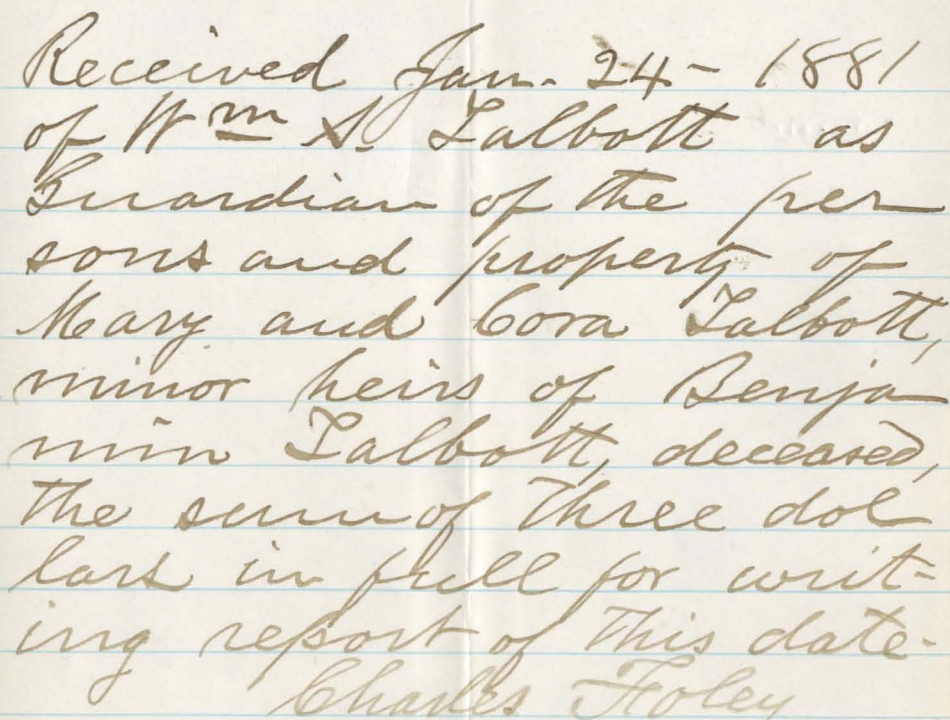 Received Jan. 24 - 1881
of Wm S. Talbott as
Guardian of the per
sons and property of
Mary and Cora Talbott,
minor heirs of Benja
min Talbott, deceased,
the sum of three dol
lars in full for writ-
ing report of this date-
Charles Foley